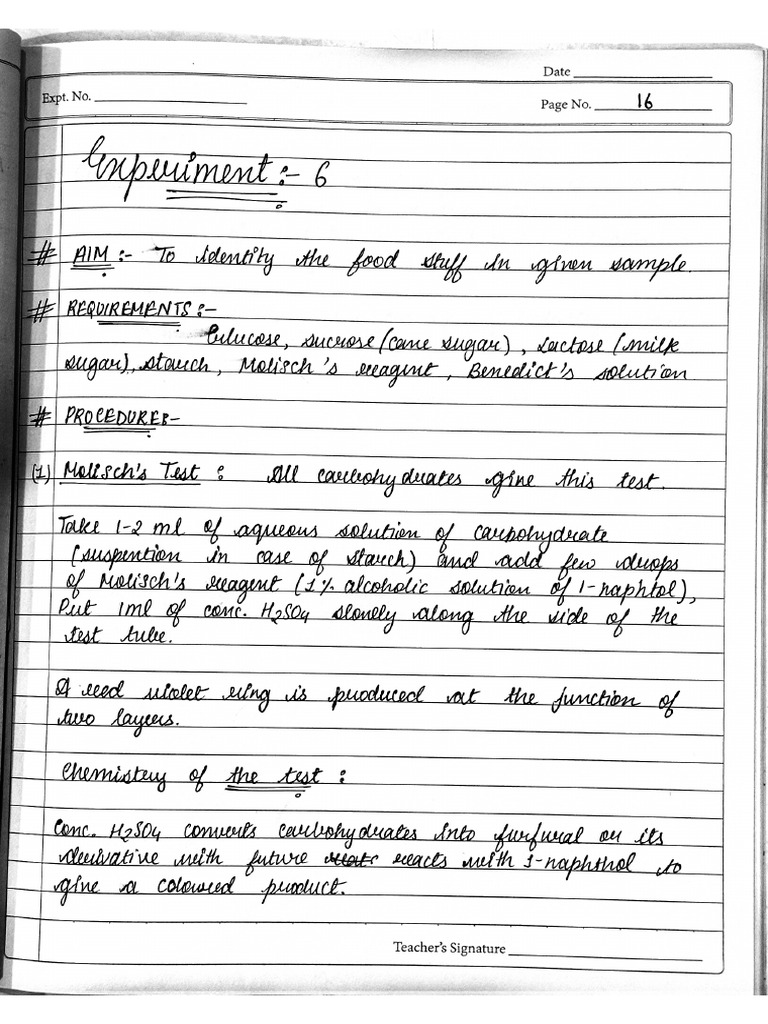 Date
Expt. No.
Page No. 16
Experiment:- 6
# AIM :- To identity the food stuff in given sample.
# REQUIREMENTS:-
Glucose, sucrose (cane sugar), Lactose (milk
sugar), starch, Molisch's reagent, Benedict's solution
# PROCEDURE:-
(1) Molisch's Test : All carbohydrates give this test.
Take 1-2 ml of aqueous solution of carbohydrate
(suspention in case of starch) and add few drops
of Molisch's reagent (1% alcoholic solution of 1-naphtol),
Put 1ml of conc. H₂SO₄ slowly along the side of the
test tube.
A reed violet ring is produced at the function of
two layers.
Chemistery of the test :
Conc. H₂SO₄ converts carbohydrates into furfural or its
derivative with future reacts with 1-naphthol to
give a coloured product.
Teacher's Signature